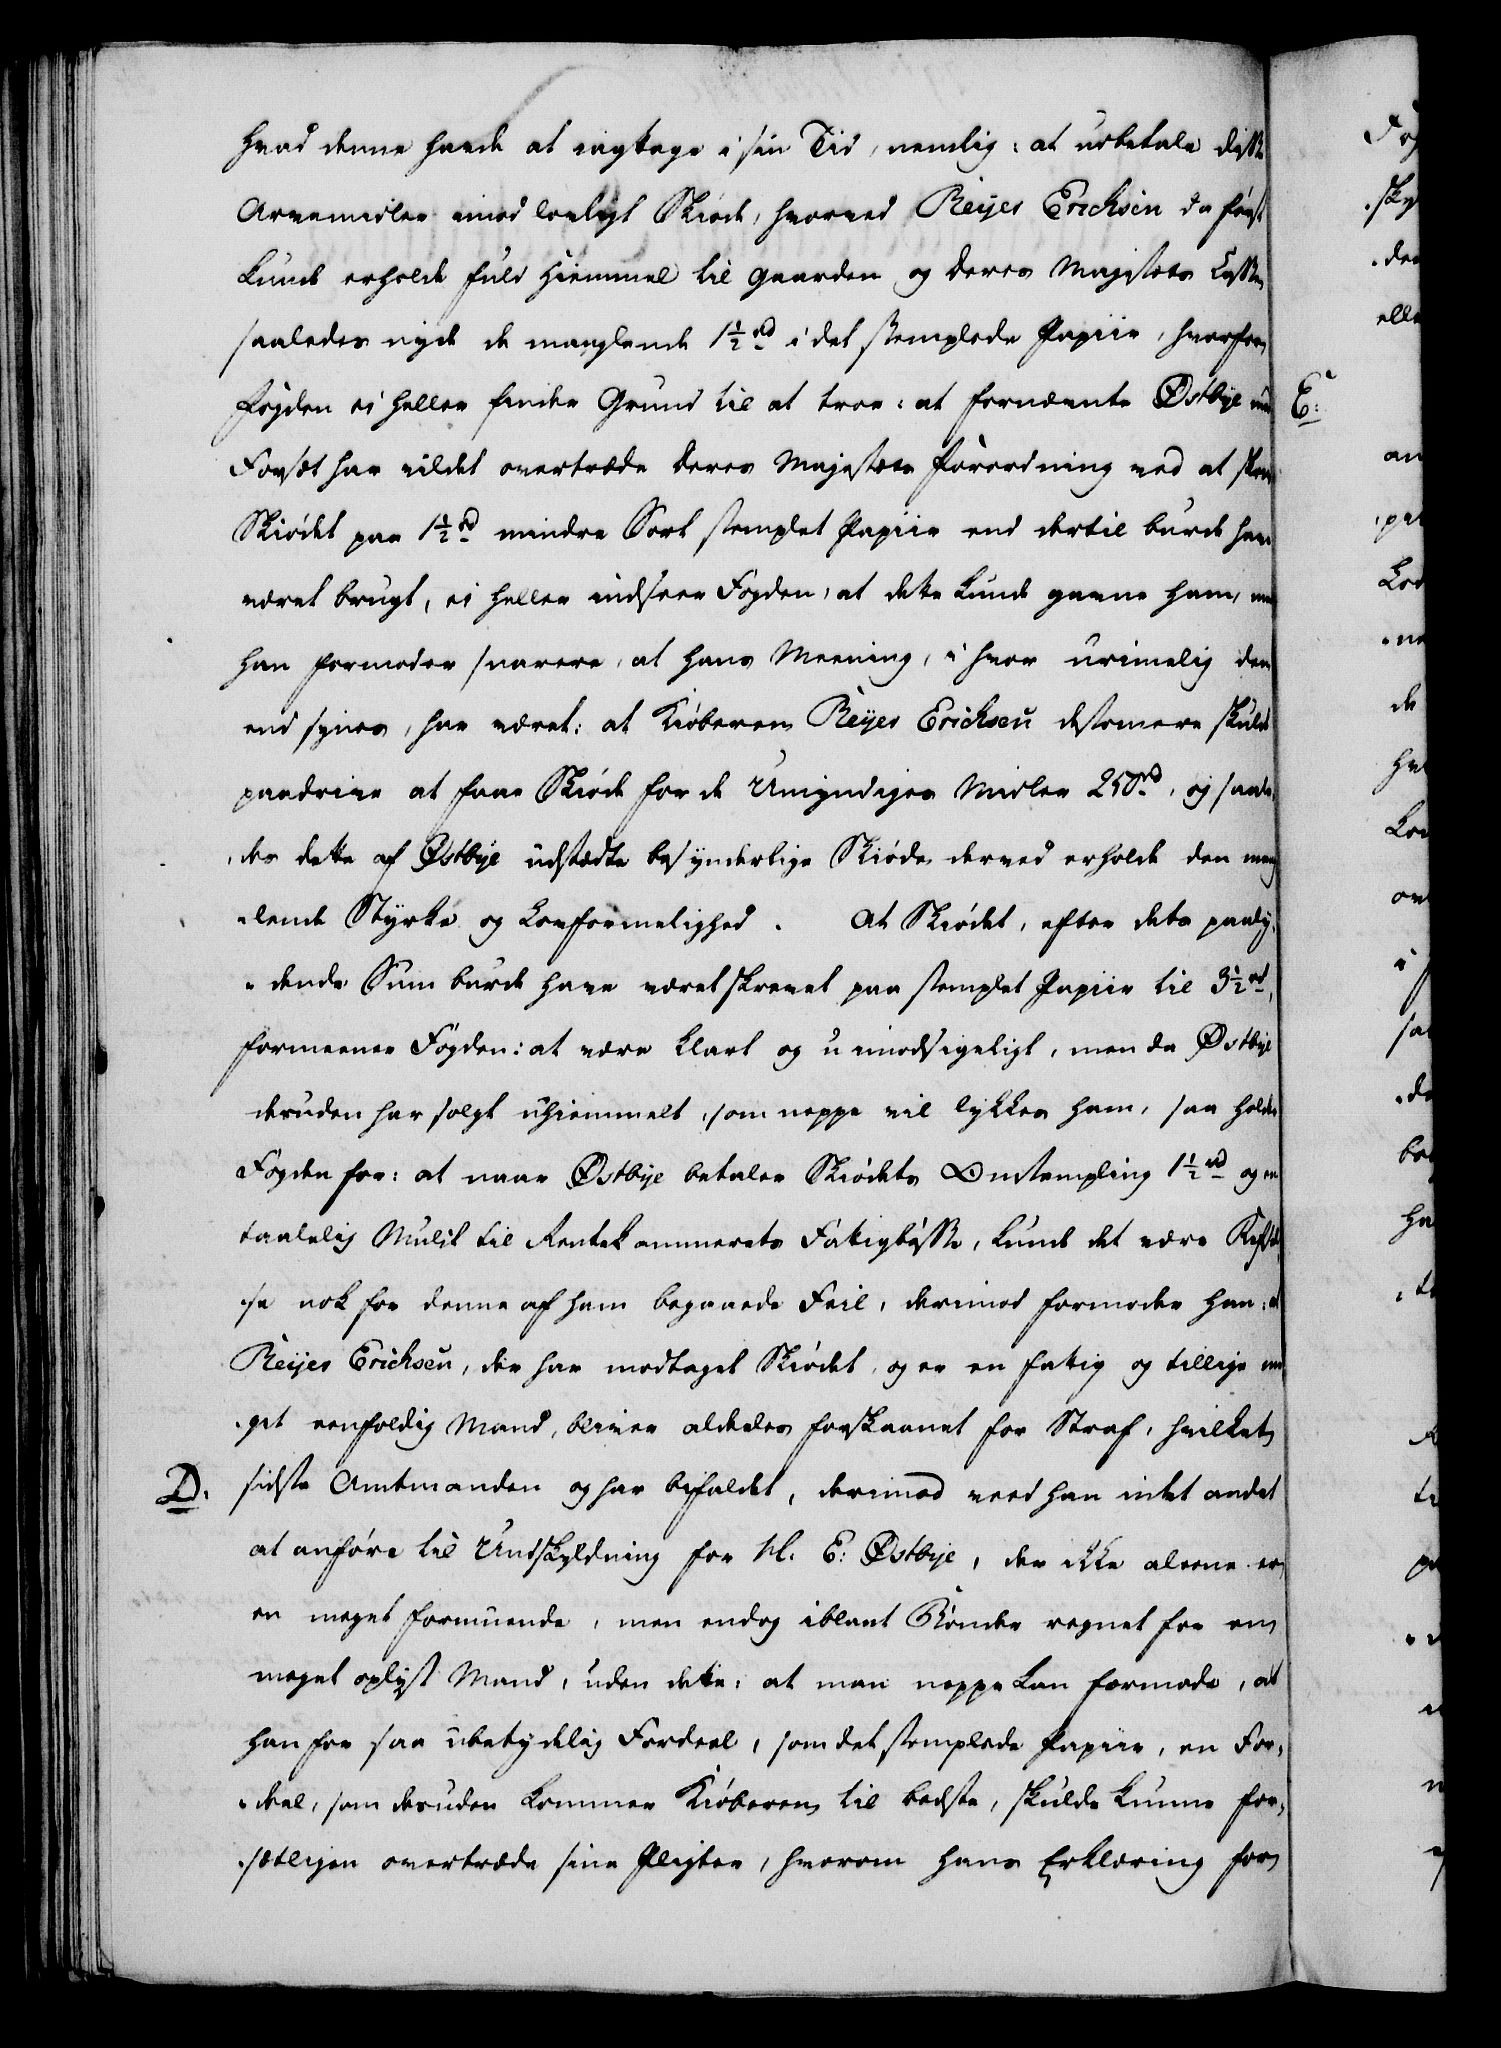 hvad denne havde at iagttage i sin Tid, nemlig: at udbetale disse
Arvemidler imod lovligt Skiøde, hvorved Reijer Erichsen da først
kunde erholde fuld Hiemmel til Gaarden og Deres Majestets Casse
saaledes nyde de manglende 1½ rd i det stemplede Papiir, hvorfor
Fogden ei heller finder Grund til at troe: at fornævnte Østbye med
Forsæt har vildet overtræde Deres Majestets Forordning ved at skrive
Skiødet paa 1½ rd mindre Sort stemplet Papiir end dertil burde have
været brugt, ei heller indseer Fogden, at dette kunde gavne ham, men
han formoder snarere, at hans Meening, i hvor urimelig den
end synes, har været: at Kiøberen Reijer Erichsen destomere skulde
paadrive at faae Skiøde for de Umyndiges Midler 250 rd, og saale,
,des dette af Østbye udstædte besynderlige Skiøde derved erholde den mang
,lende Styrke og Lovformelighed. At Skiødet, efter dets paaly,
,dende Sum burde have været skrevet paa stemplet Papiir til 3½ rd,
formeener Fogden: at være klart og uimodsigeligt, men da Østbye
desuden har solgt uhiemmelt, som neppe vil lykkes ham, saa holder
Fogden for: at naar Østbye betaler Skiødets Omstempling 1½ rd og en
taalelig Mulct til Rentekammerets Fatigbøsse, kunde det være Refsel,
,se nok for denne af ham begaaede Feil, derimod formoder han: at
Reijer Erichsen, der har modtaget Skiødet, og er en fatig og tillige me
,get eenfoldig Mand, bliver aldeeles forskaanet for Straf, hvilket
D. sidste Amtmanden og har bifaldet, derimod veed han intet andet
at anføre til Undskyldning for Nl. E: Østbye, der ikke aleene er
en meget formuende, men endog iblant Bønder regnet for en
meget oplyst Mand, uden dette: at man neppe kan formode, at
han for saa ubetydelig Fordeel, som det stemplede Papiir, en For,
,deel, som desuden kommer Kiøberen til bedste, skulde kunne for,
,sætligen overtræde sine Pligter, hvorom hans Erklæring for